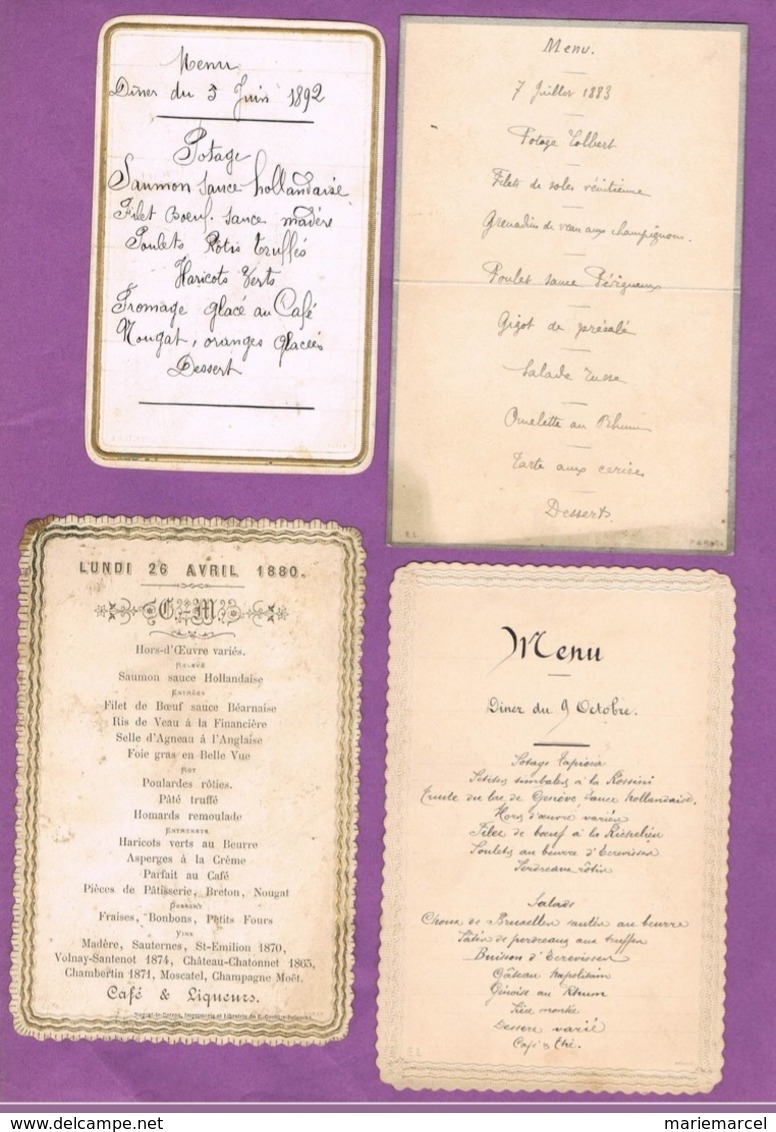 Menu
Dîner du 5 Juin 1892
Potage
Saumon sauce hollandaise
Filet Boeuf sauce madère
Poulets Rôtis truffés
Haricots Verts
Fromage glacé au Café
Nougat, oranges glacées
Dessert
Menu.
7 Juillet 1883
Potage Colbert
Filets de soles vénitienne
Grenadins de veau aux champignons.
Poulet sauce Périgueux
Gigot de présalé
Salade russe
Omelette au Rhum
Tarte aux cerises
Desserts
E.L.
PARIS
LUNDI 26 AVRIL 1880.
G-M
Hors-d'Œuvre variés.
RELEVÉ
Saumon sauce Hollandaise
ENTRÉES
Filet de Bœuf sauce Béarnaise
Ris de Veau à la Financière
Selle d'Agneau à l'Anglaise
Foie gras en Belle Vue
ROT
Poulardes rôties.
Pâté truffé
Homards remoulade
ENTREMETS
Haricots verts au Beurre
Asperges à la Crême
Parfait au Café
Pièces de Pâtisserie, Breton, Nougat
DESSERT
Fraises, Bonbons, Petits Fours
VINS
Madère, Sauternes, St-Emilion 1870,
Volnay-Santenot 1874, Château-Chatonnet 1865,
Chambertin 1871, Moscatel, Champagne Moët.
Café & Liqueurs.
Imprimerie et Librairie de
Menu
Diner du 9 Octobre.
Potage Tapioca
Petites timbales à la Rossini
Truite du lac de Genève, sauce hollandaise.
Hors d'œuvre variés
Filet de bœuf à la Richelieu
Poulets au beurre d'Ecrevisses
Perdreaux rôtis
Salade
Choux de Bruxelles sautés au beurre
Pâtés de perdreaux aux truffes
Buisson d'Ecrevisses
Gâteau napolitain
Génoise au Rhum
Pièce montée
Dessert varié
Café & Thé
E.L
mariemarcel